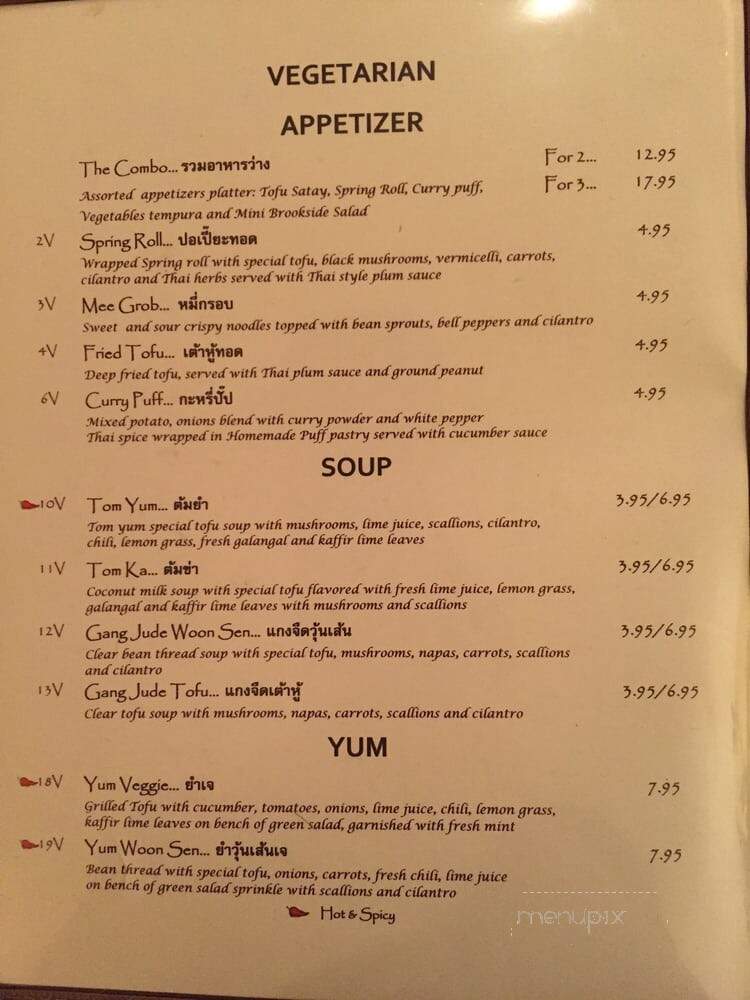 VEGETARIAN
APPETIZER
The Combo... รวมอาหารว่าง For 2... 12.95
Assorted appetizers platter: Tofu Satay, Spring Roll, Curry puff, For 3... 17.95
Vegetables tempura and Mini Brookside Salad
2V Spring Roll... ปอเปี๊ยะทอด 4.95
Wrapped Spring roll with special tofu, black mushrooms, vermicelli, carrots,
cilantro and Thai herbs served with Thai style plum sauce
3V Mee Grob... หมี่กรอบ 4.95
Sweet and sour crispy noodles topped with bean sprouts, bell peppers and cilantro
4V Fried Tofu... เต้าหู้ทอด 4.95
Deep fried tofu, served with Thai plum sauce and ground peanut
6V Curry Puff... กะหรี่ปั๊ป 4.95
Mixed potato, onions blend with curry powder and white pepper
Thai spice wrapped in Homemade Puff pastry served with cucumber sauce
SOUP
10V Tom Yum... ต้มยำ 3.95/6.95
Tom yum special tofu soup with mushrooms, lime juice, scallions, cilantro,
chili, lemon grass, fresh galangal and kaffir lime leaves
11V Tom Ka... ต้มข่า 3.95/6.95
Coconut milk soup with special tofu flavored with fresh lime juice, lemon grass,
galangal and kaffir lime leaves with mushrooms and scallions
12V Gang Jude Woon Sen... แกงจืดวุ้นเส้น 3.95/6.95
Clear bean thread soup with special tofu, mushrooms, napas, carrots, scallions
and cilantro
13V Gang Jude Tofu... แกงจืดเต้าหู้ 3.95/6.95
Clear tofu soup with mushrooms, napas, carrots, scallions and cilantro
YUM
18V Yum Veggie... ยำเจ 7.95
Grilled Tofu with cucumber, tomatoes, onions, lime juice, chili, lemon grass,
kaffir lime leaves on bench of green salad, garnished with fresh mint
19V Yum Woon Sen... ยำวุ้นเส้นเจ 7.95
Bean thread with special tofu, onions, carrots, fresh chili, lime juice
on bench of green salad sprinkle with scallions and cilantro
Hot & Spicy
menupix